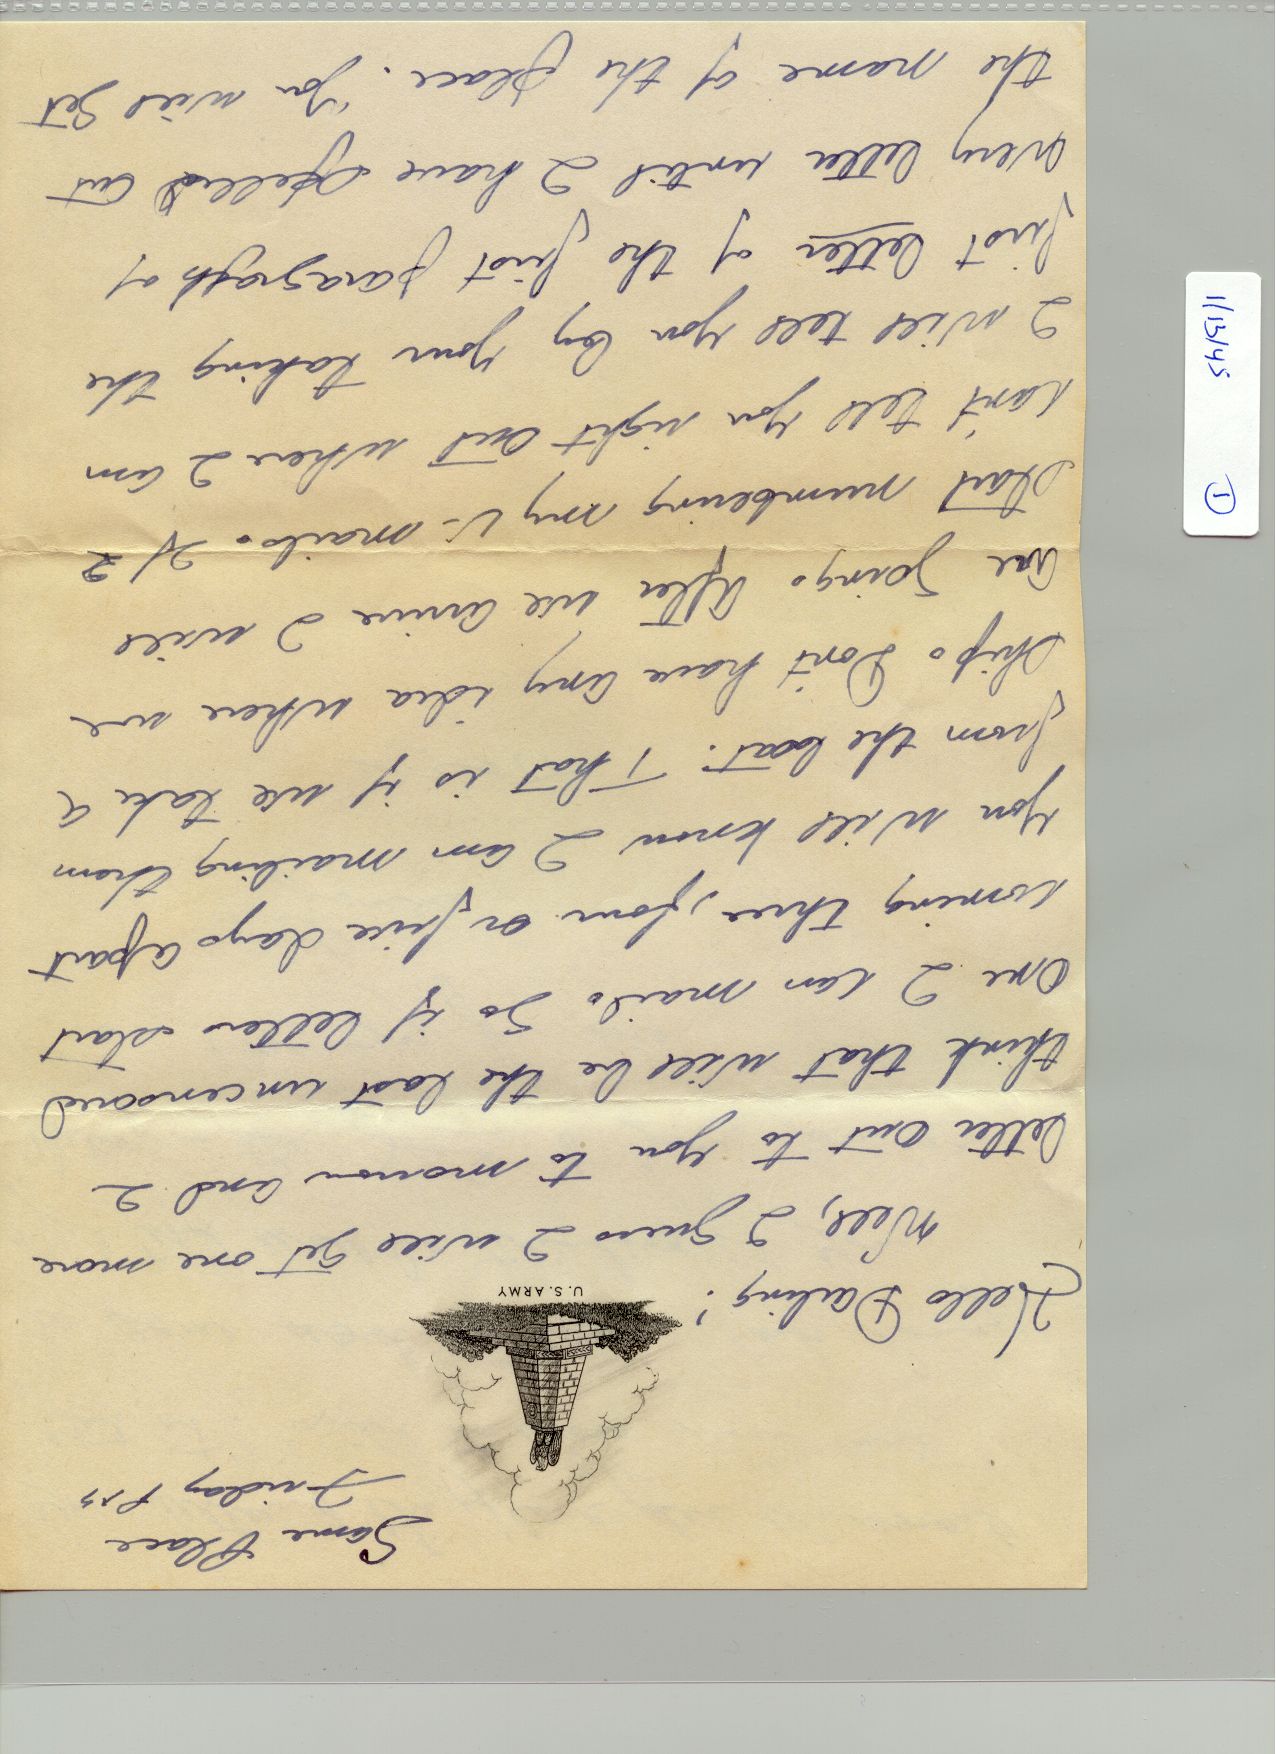 Same Place
Friday P.M.
U.S. ARMY
Hello Darling!
Well, I guess I will get one more
letter out to you to morrow and I
think that will be the last uncensored
one I can mail. So if letters start
coming three, four or five days apart
you will know I am mailing them
from the boat. That is if we take a
ship. Don't have any idea where we
are going. After we arrive I will
start numbering my V-mails. If I
can't tell you right out where I am
I will tell you by your taking the
first letter of the first paragraph of
every letter until I have spelled out
the name of the place. You will get
1/13/45
1